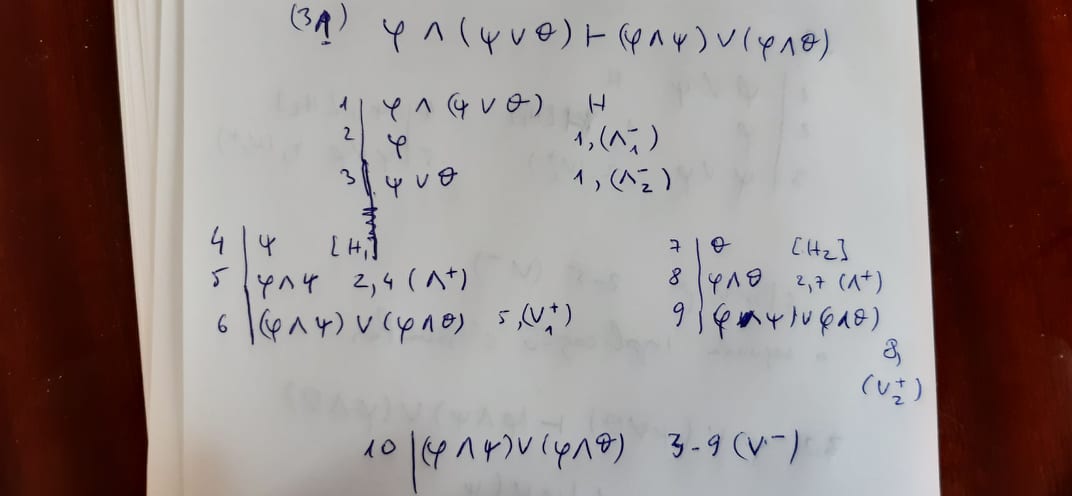 (3A) φ ∧ (ψ ∨ θ) ⊢ (φ ∧ ψ) ∨ (φ ∧ θ)
1 φ ∧ (ψ ∨ θ) H
2 φ 1, (∧₁⁻)
3 ψ ∨ θ 1, (∧₂⁻)
4 ψ [H₁]
5 φ ∧ ψ 2,4 (∧⁺)
6 (φ ∧ ψ) ∨ (φ ∧ θ) 5, (∨₁⁺)
7 θ [H₂]
8 φ ∧ θ 2,7 (∧⁺)
9 (φ ∧ ψ) ∨ (φ ∧ θ)
8,
(∨₂⁺)
10 (φ ∧ ψ) ∨ (φ ∧ θ) 3-9 (∨⁻)